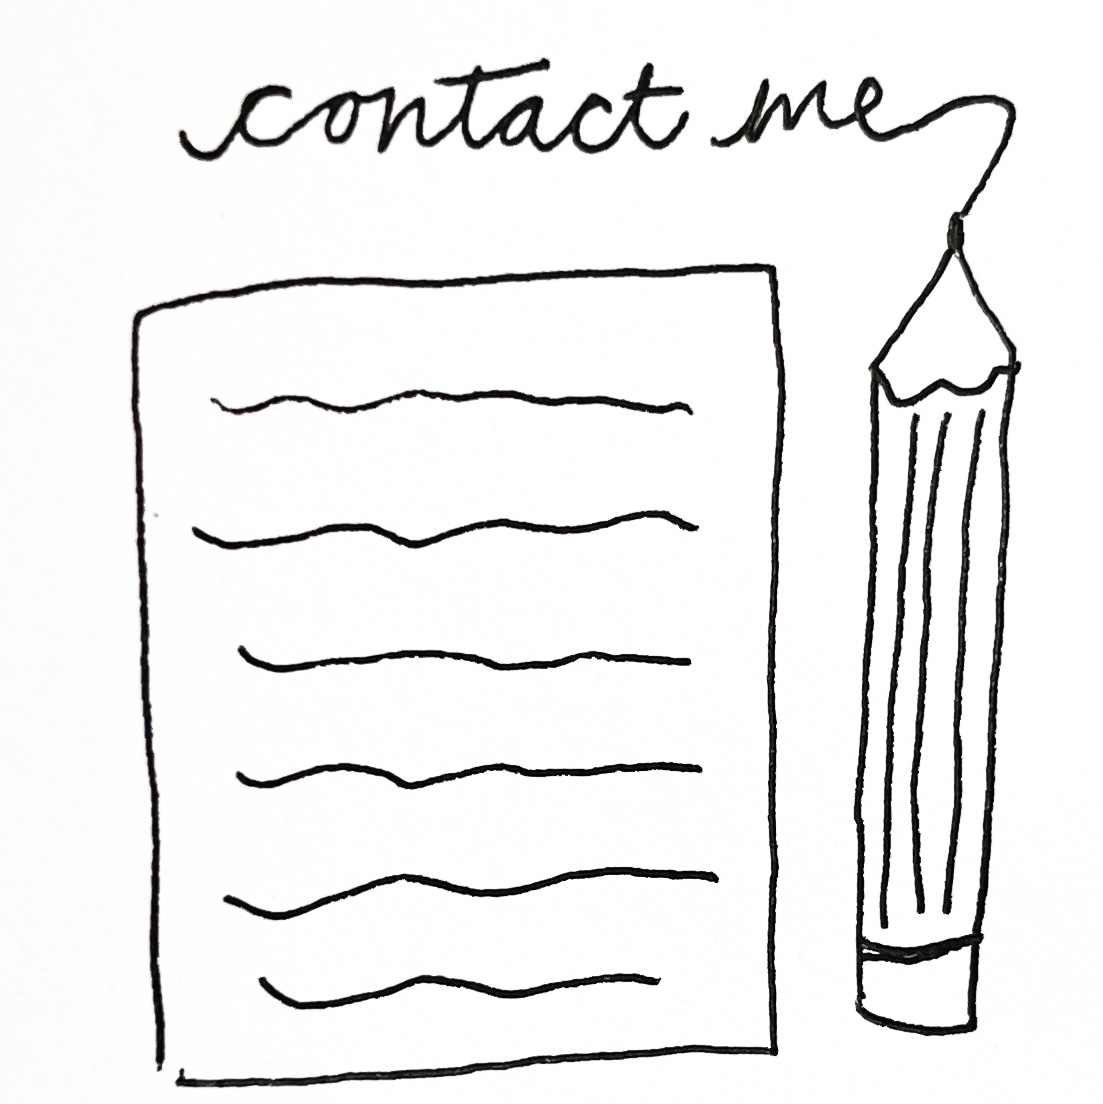 contact me